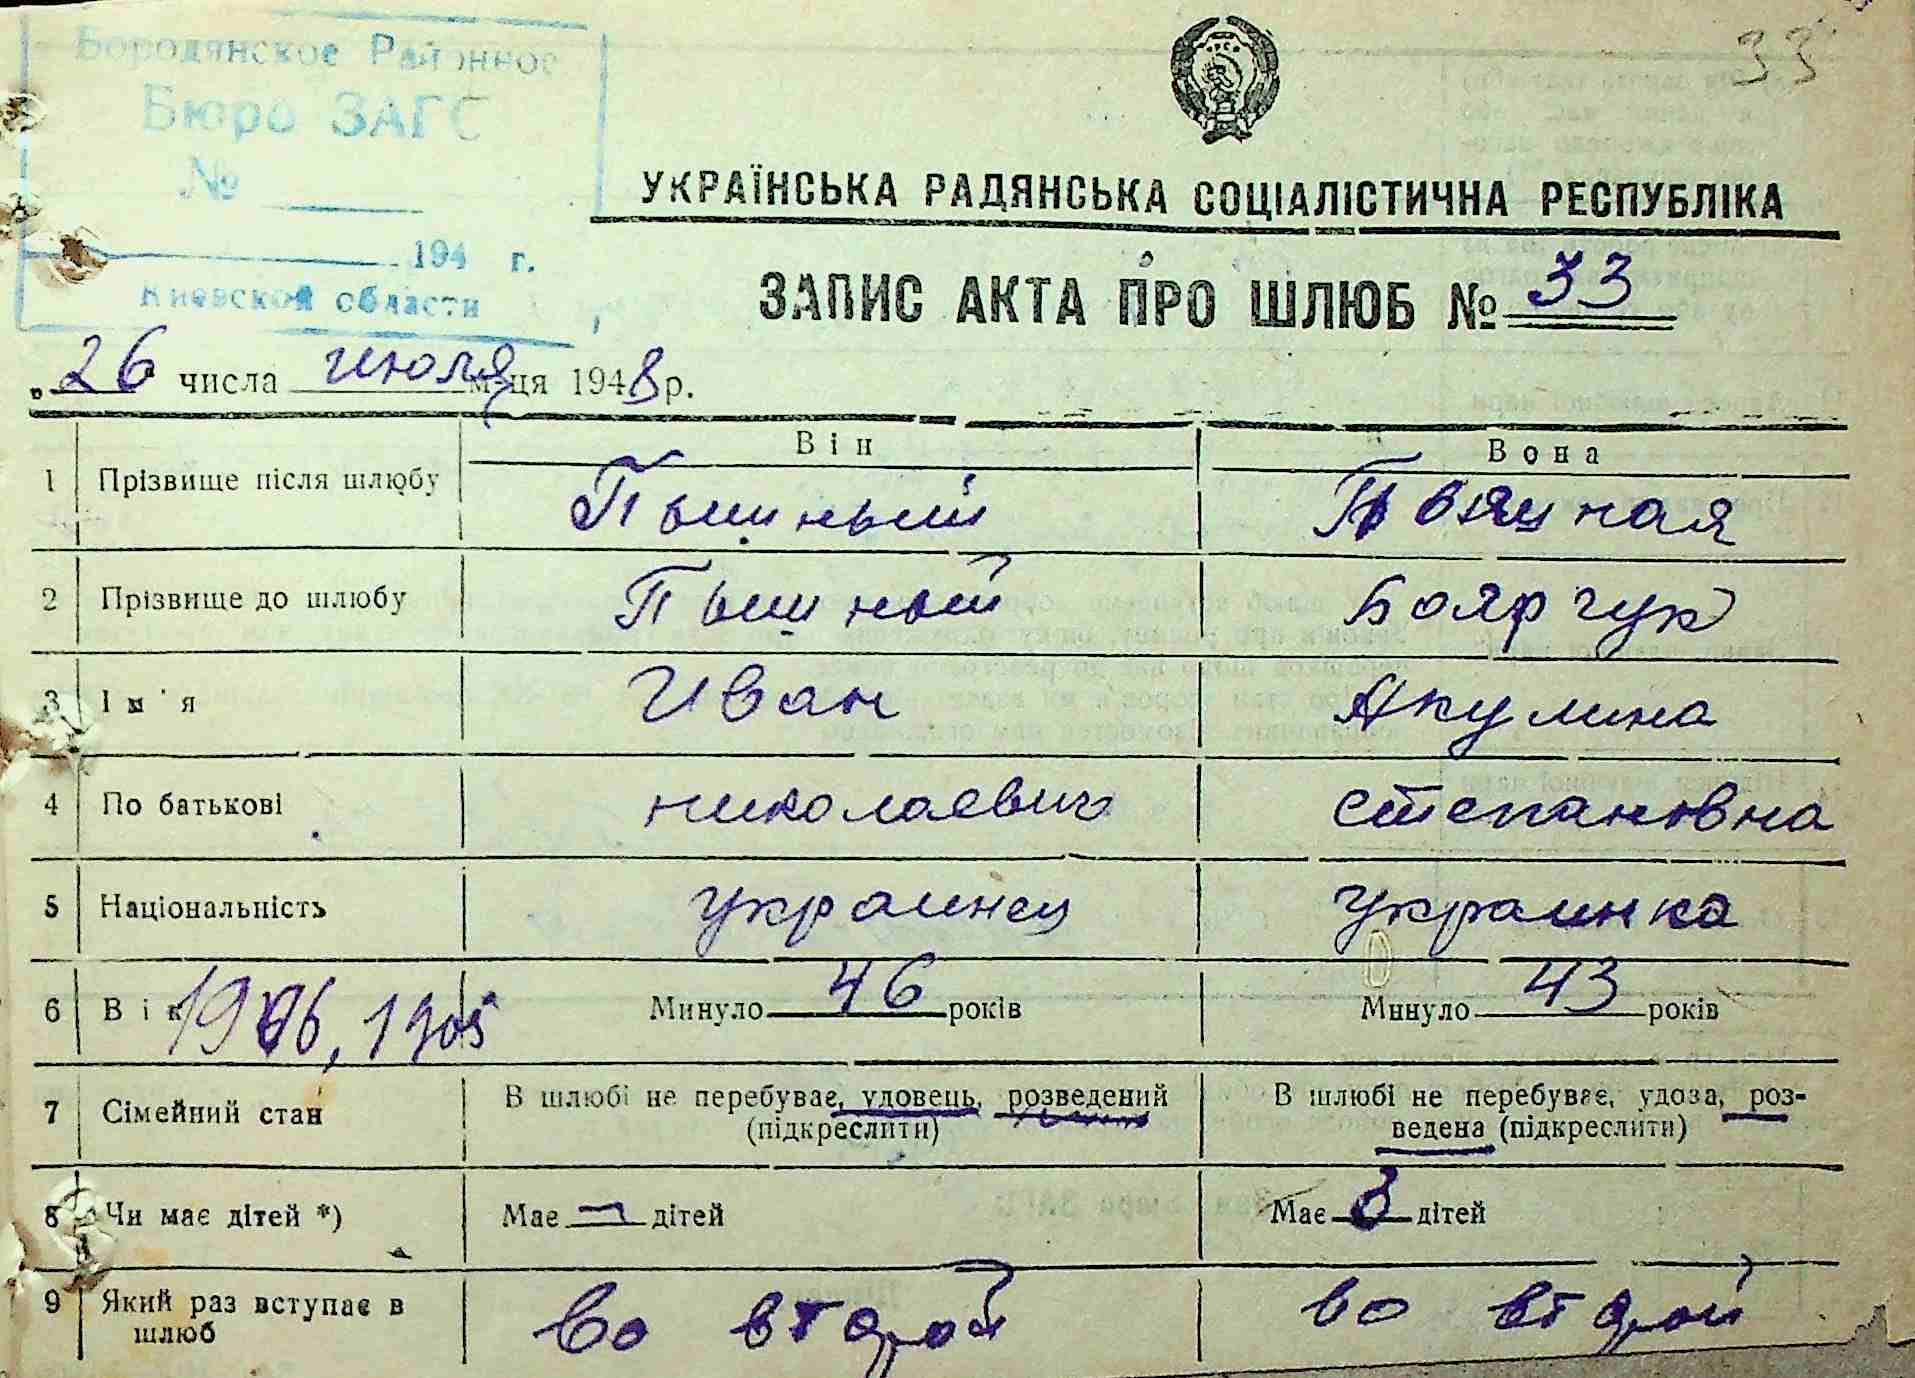 Бородянское Районное
Бюро ЗАГС
№
194 г.
Киевской области
33
УКРАЇНСЬКА РАДЯНСЬКА СОЦІАЛІСТИЧНА РЕСПУБЛІКА
ЗАПИС АКТА ПРО ШЛЮБ № 33
„26" числа июля м-ця 1948 р.
Він Вона
1 Прізвище після шлюбу Пышный Пышная
2 Прізвище до шлюбу Пышный Боярчук
3 Ім'я Иван Акулина
4 По батькові николаевич степановна
5 Національність украинец украинка
6 Вік 1906, 1905 Минуло 46 років Минуло 43 років
7 Сімейний стан В шлюбі не перебуває, удовець, розведений В шлюбі не перебуває, удова, роз-
(підкреслити) ведена (підкреслити)
8 Чи має дітей *) Має — дітей Має 3 дітей
9 Який раз вступає в во второй во второй
шлюб